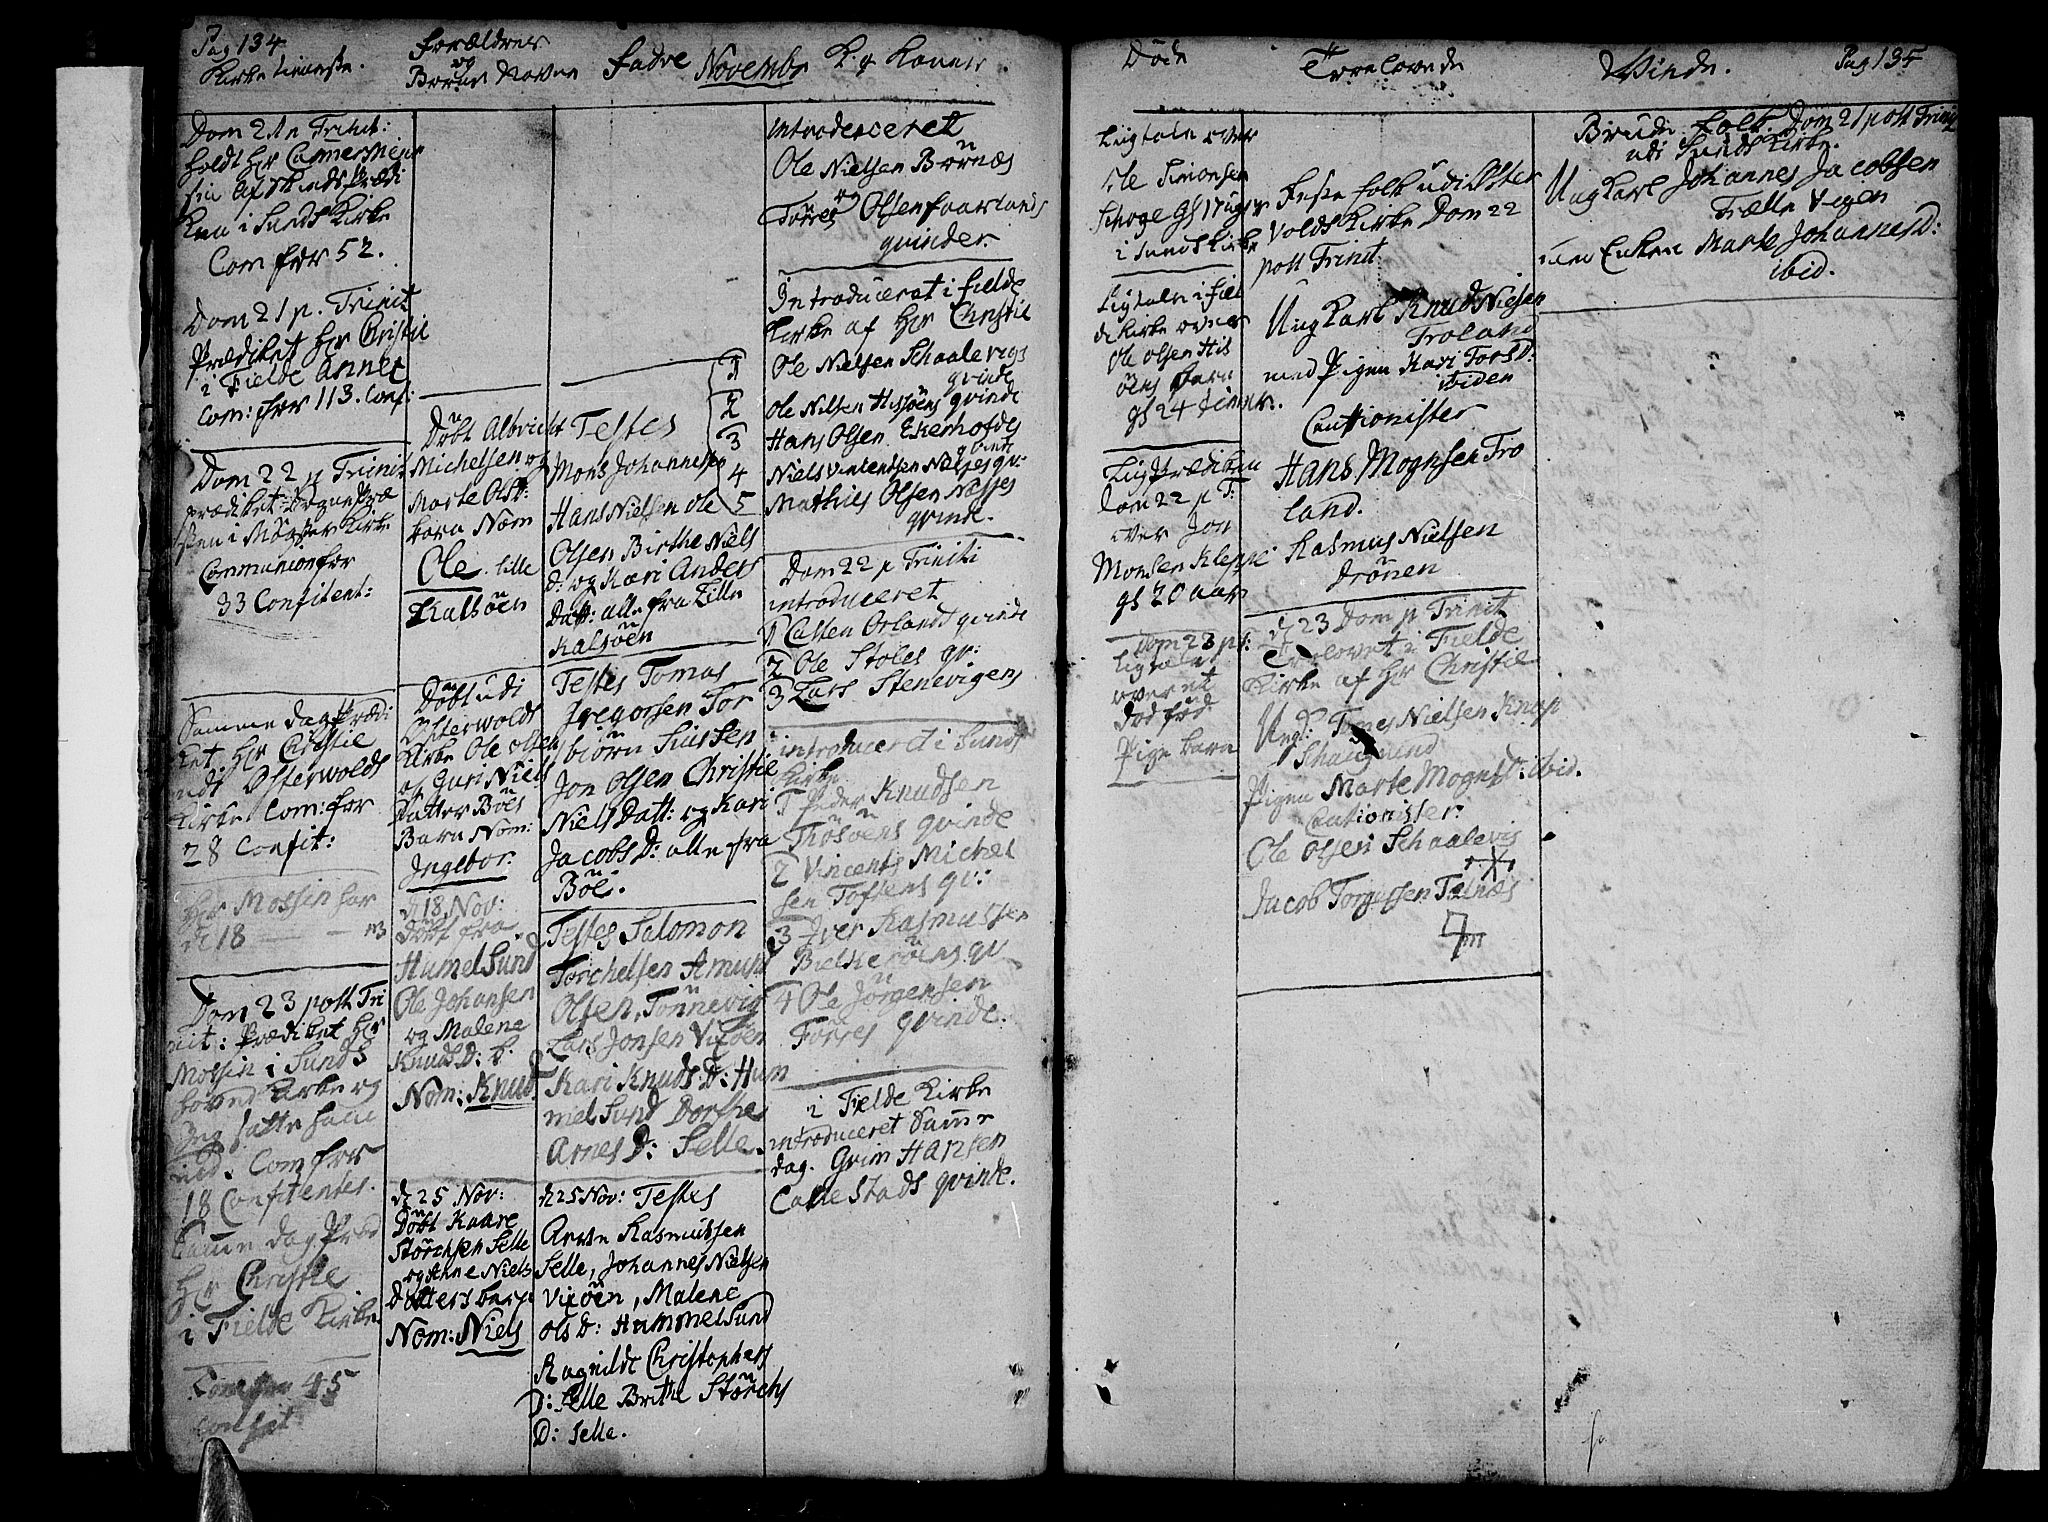 Pag 134
Kirke tieneste.
Forældres
og
Barns Nafne
Fadre
Novembr
K. g. Konnir
Dom 21 p Trinit:
holdt Hr
sin afskeds prædi
ken i Sunds Kirke
Com for 52.
Dom 21 p. Trinit
Prædiket Hr Cristie
i Fielde annex
Com: for 113. Conf:
Dom 22 p Trinit
prædiket
i Møgster Kirke
Communion for
33 Confitent:
Samme dag Prædi
ket Hr Christie
udi Østerwolds
Kirke Com: for
28 Confit:
Hr Mossin har
d 18
Dom 23 post Tri
nit: Prædiket Hr
Mossin i Sunds
hoved Kirke og
Jeg satte ham
ind. Com for
18 Confitentes.
Samme dag Præd
Hr Christie
i Fielde Kirke
Com for 45
Confit
Døbt Albricht
Michelsen og
Marte Olsd:
barn Nom
Ole. Lille
Kalsöen
Döbt udi
Österwolds
Kirke Ole Olsen
og Guri Niels
datter Böes
Barn Nom:
Ingebor.
d 18 Nov:
döbt fra
Humelsund
Ole Johansen
og Malene
Knuds D: b.
Nom: Knud
d 25 Nov:
Döbt Kaare
Störchsen Selle
og Anne Niels
Dotters barn
Nom: Niels
Testes
Mons Johannesen
Hans Nielsen Ole
Olsen Birthe Niels
d: og Kari Anders
Datt: alle fra Lille
Kalsöen
Testes Tomas
Gregorsen Tor
biörn Siursen
Jon Olsen Christie
Niels Datt: og Kari
Jacobs D: alle fra
Böe.
Testes Salomon
Torchelsen Amund
Olsen, Tönnevig
Lars Jonsen Vixöen
Kari Knuds D: Hum
mel Sund Dorthe
Arnes D: Selle.
d 25 Nov: Testes
Arne Rasmussen
Selle, Johannes Nielsen
Vixöen, Malene
Ols D: Hummelsund
Ragnilde Christophers
D: Selle Brithe Störchs
D: Selle.
introduceret
Ole Nielsen Börnæs
og
Törres Olsen Faarlands
qvinder.
Introduceret i Fielde
Kirke af Hr Christie
1 Ole Nielsen Schaalevigs
qvinde
2 Ole Nilsen Hissöens qvinde
3 Hans Olsen Ekerhofdes
qvinde
4 Niels Vincendsen Næsses qv:
5 Mathies Olsen Nesses
qvinde.
Dom 22 p Triniti
introduceret
1 Casten Orlands qvinde
2 Ole Stoles qv:
3 Lars Stenevigens
introduceret i Sunds
Kirke
1 Peder Knudsen
Thösöens qvinde
2 Vincents Michel
sen Toftens qv:
3 Iver Rasmussen
Bielkeröens qv
4 Ole Jörgensen
Förres qvinde.
i Fielde Kirke
introduceret Samme
dag. Grim Hansen
Callestads qvinde.
Döde
Troelovede
Viede.
Pag 135
Ligtale over
Ole Simonsen
Schoge gl 17 uger
i Sunds Kirke
Ligtale i Fiel
de Kirke over
Ole Olsen His
öens barn
gl 24 timer.
Ligprædiken
Dom 22 p T:
over Jon
Monsen Kleppe
gl 20 aar
Dom 23 p t:
Ligtale
over et
död föd
Pige barn
Feste folk udi Öster
volds Kirke Dom 22
post Trinit
Ung Karl Knud Nielsen
Troland
med Pigen Kari Tors D:
ibiden
Cautionister
Hans Mognsen Tro
land.
Rasmus Nielsen
Drönen
d 23 Dom p Trinit
Troelovet i Fielde
Kirke af Hr Christie
Ungk: Tomes Nielsen
Schaugsund
Pigen Marte Mognsd: ibid.
Cautionister:
Ole Olsen Schaalevis
Jacob Torgersen Telnæs
Brude folk Dom 21 post Trinit
udi Sunds Kirke.
Ung Karl Johannes Jacobsen
Trælle Vigen
med Enken Marte Johannesd:
ibid.